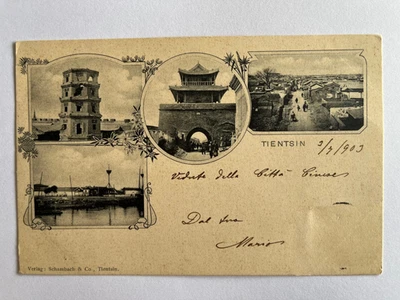 TIENTSIN
3/7/903
Vedute della Città Cinese
Dal tuo
Mario
Verlag: Schambach & Co., Tientsin.